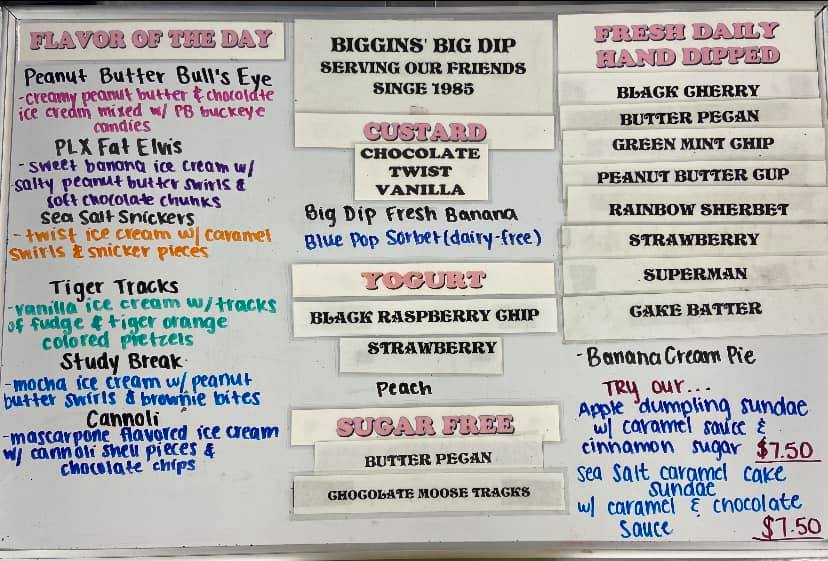 FLAVOR OF THE DAY
Peanut Butter Bull's Eye
-creamy peanut butter & chocolate
ice cream mixed w/ PB buckeye
candies
PLX Fat Elvis
-sweet banana ice cream w/
salty peanut butter swirls &
soft chocolate chunks
Sea Salt Snickers
-twist ice cream w/ caramel
swirls & snicker pieces
Tiger Tracks
-vanilla ice cream w/tracks
of fudge & tiger orange
colored pretzels
Study Break
-mocha ice cream w/ peanut
butter swirls & brownie bites
Cannoli
-mascarpone flavored ice cream
w/ cannoli shell pieces &
chocolate chips
BIGGINS' BIG DIP
SERVING OUR FRIENDS
SINCE 1985
CUSTARD
CHOCOLATE
TWIST
VANILLA
Big Dip Fresh Banana
Blue Pop Sorbet (dairy-free)
YOGURT
BLACK RASPBERRY CHIP
STRAWBERRY
Peach
SUGAR FREE
BUTTER PECAN
CHOCOLATE MOOSE TRACKS
FRESH DAILY
HAND DIPPED
BLACK CHERRY
BUTTER PECAN
GREEN MINT CHIP
PEANUT BUTTER CUP
RAINBOW SHERBET
STRAWBERRY
SUPERMAN
CAKE BATTER
-Banana Cream Pie
TRY our...
Apple dumpling sundae
w/ caramel sauce &
cinnamon sugar $7.50
sea salt caramel cake
sundae
w/ caramel & chocolate
sauce $7.50